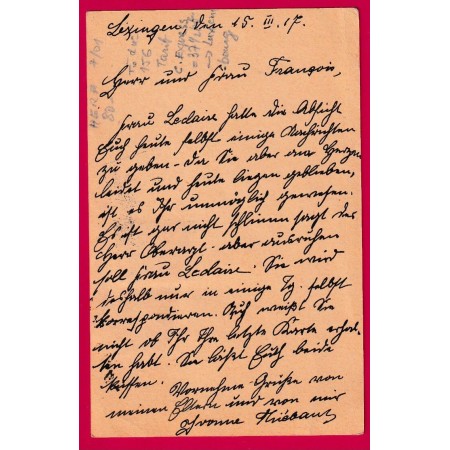 Lexingen, den 15. III. 17.
Herr und Frau François,
Frau Leclaire hatte die Absicht
Euch heute selbst einige Nachrichten
zu geben - da Sie aber am Herzen
leidet und heute liegen geblieben,
ist es Ihr unmöglich gewesen.
Es ist gar nicht schlimm sagt der
Herr Oberarzt - aber ausruhen
soll Frau Leclaire. Sie wird
deshalb nur in einige Tg. selbst
korrespondieren. Auch weißt Sie
nicht ob Ihr Ihre letzte Karte erhal-
ten habt. Sie läßt Euch beide
küssen.
Vornehme Grüße von
meinen Eltern und von mir
Yvonne